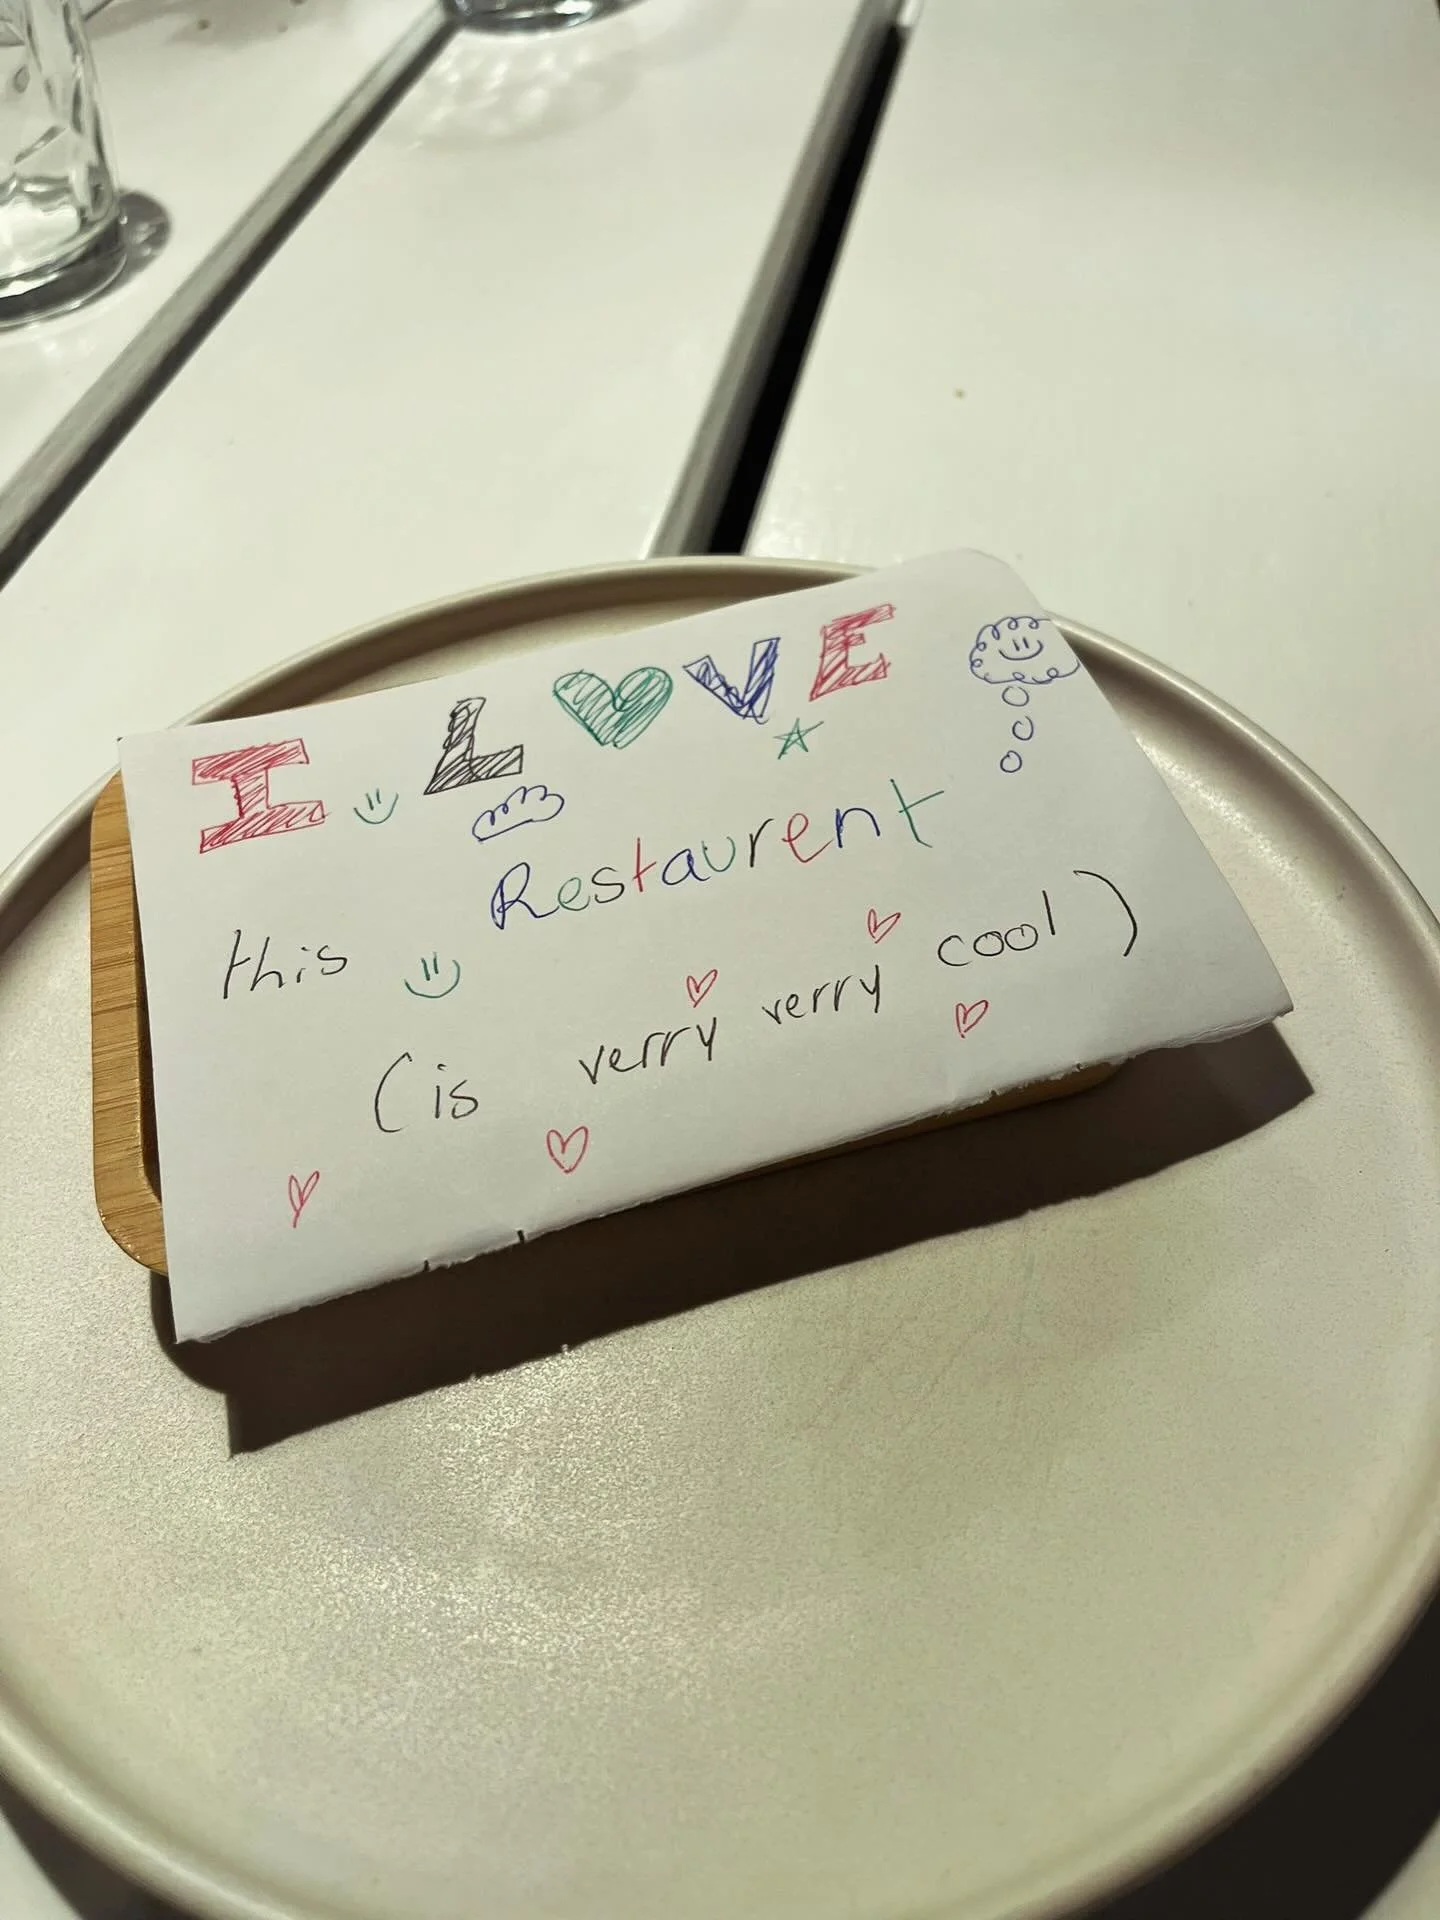 I LOVE
this Restaurent
(is verry verry cool)